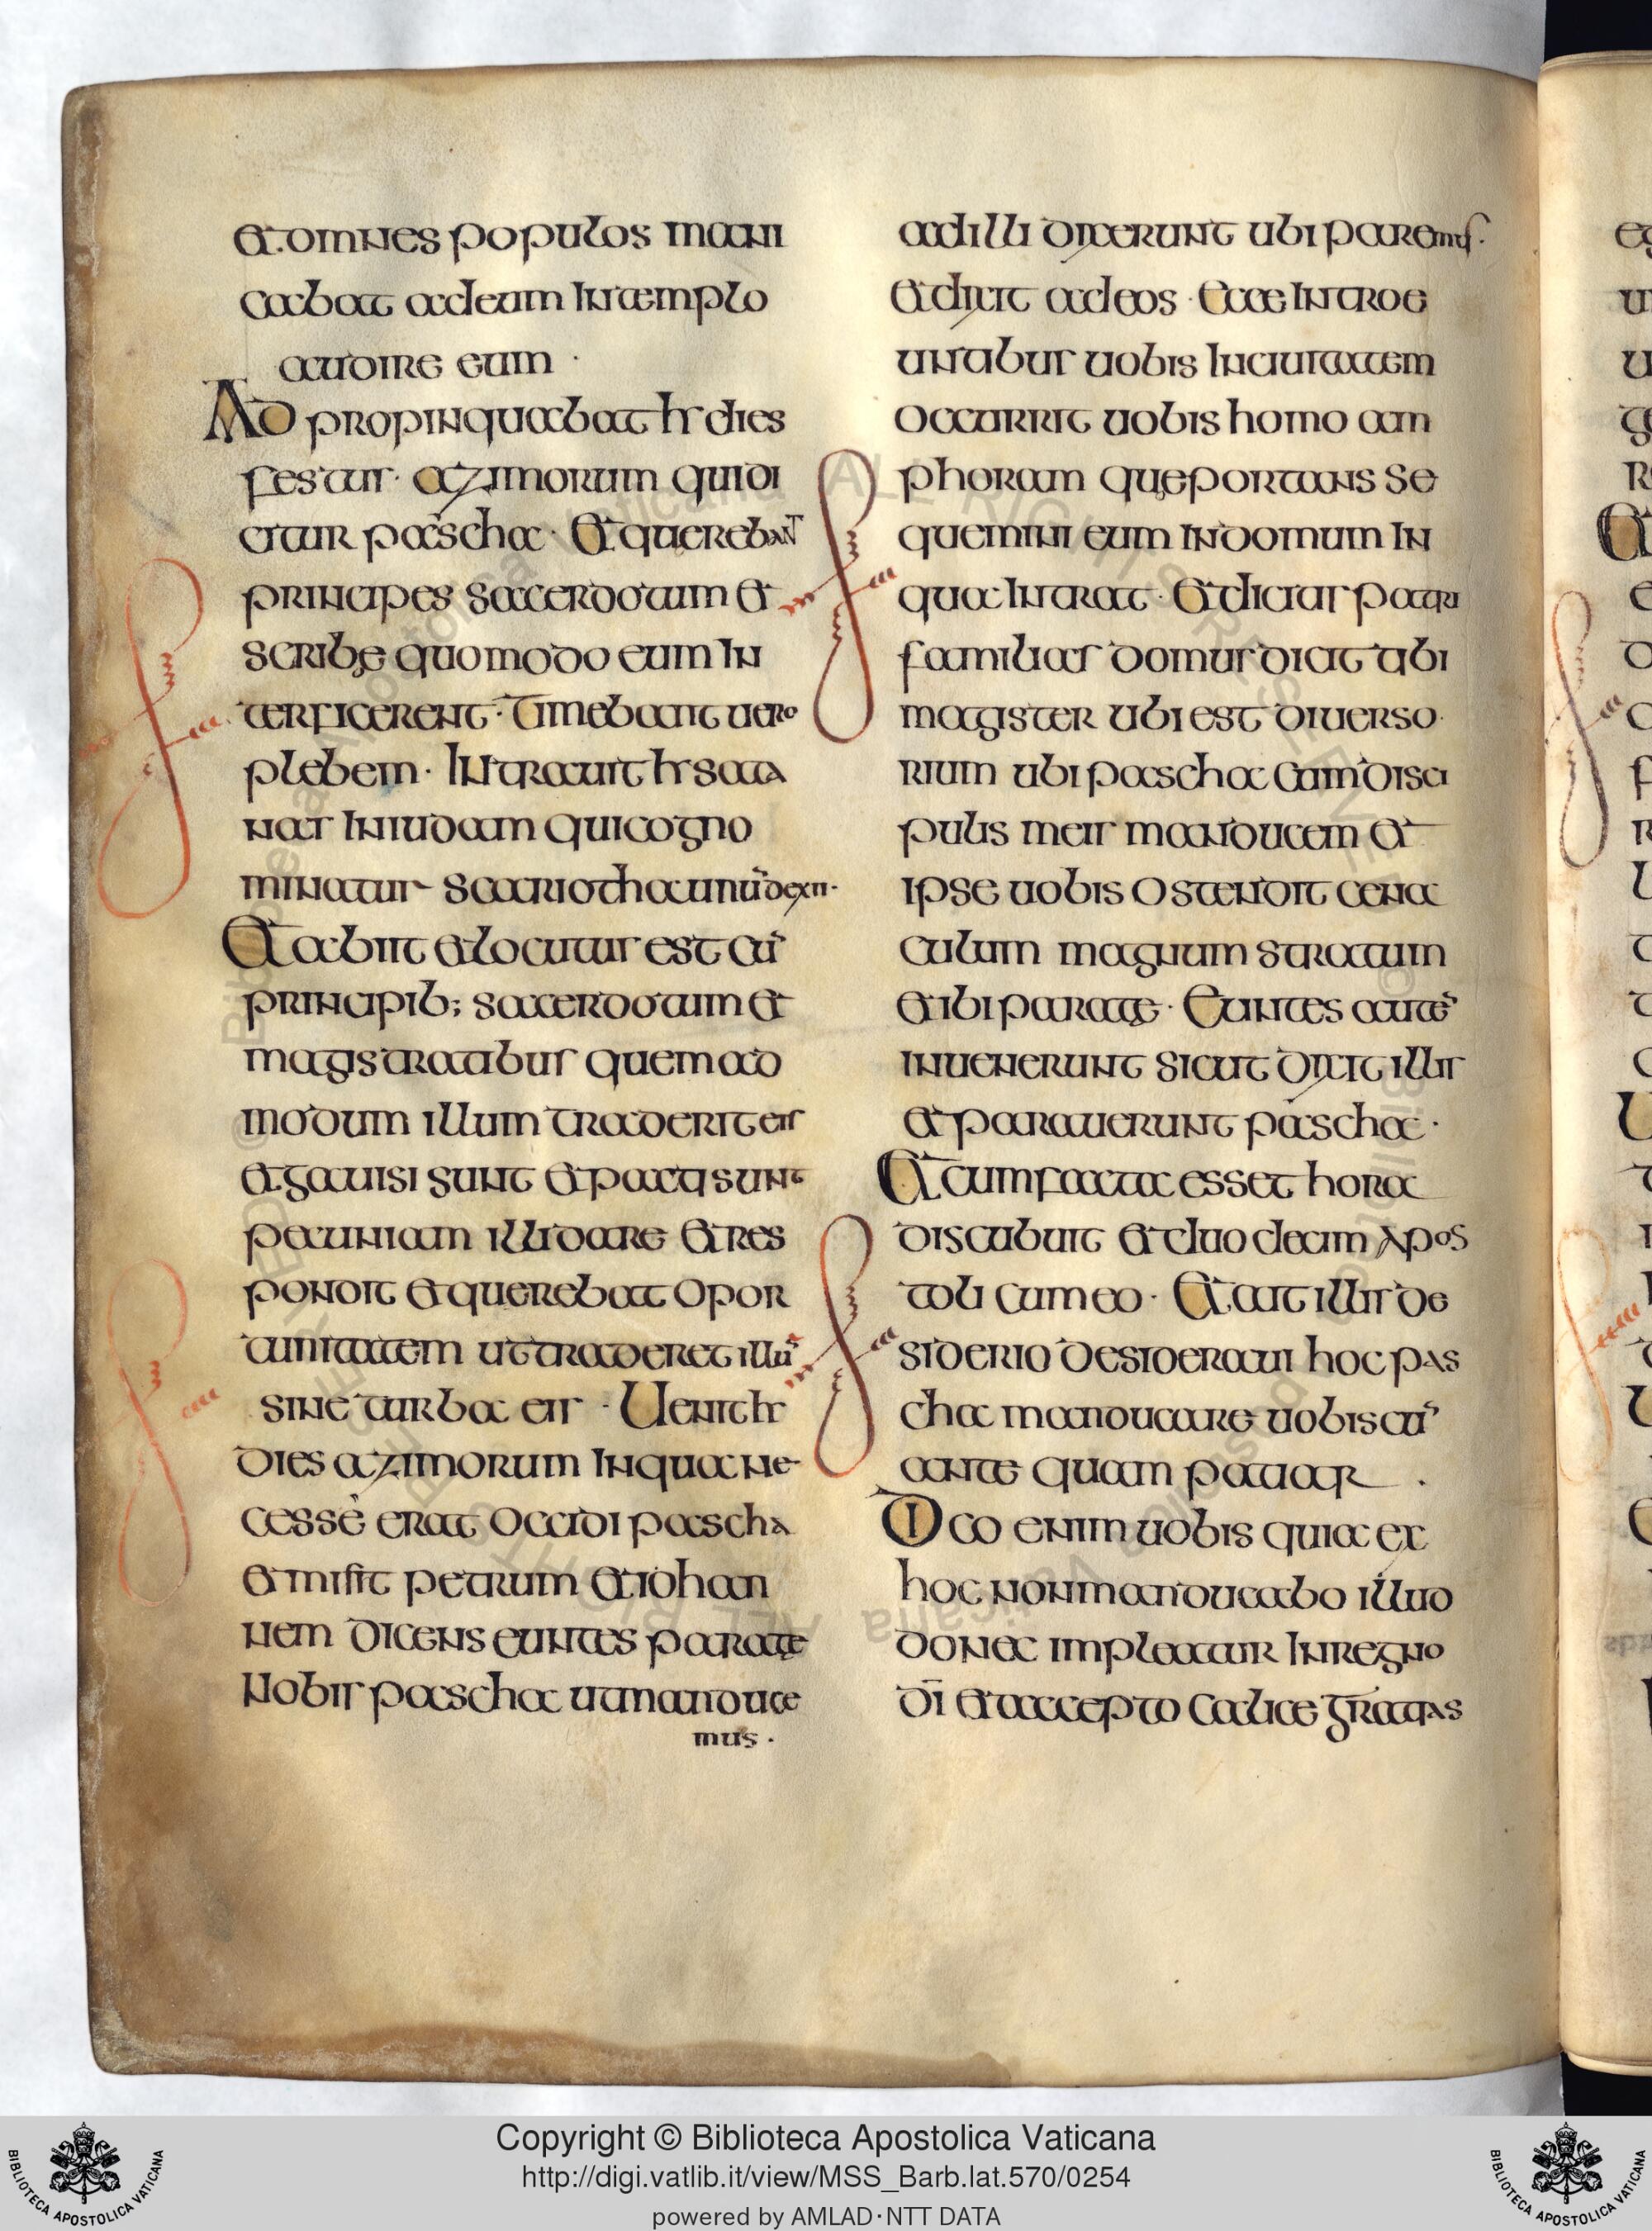 et omnes populos mani
cabat adeum Intemplo
audire eum ·
AD propinquabat hr dies
festur · azimorum quidi
citur pascha · Et querebant
principes sacerdotum et
scribę quomodo eum In
terficerent · Timebant uero
plebem · INtrauit hr sata
nar Iniudam quicogno
minatur scariotha unū dexii ·
Et abiit etlocutur est cū
principib; sacerdotum et
magistratibur quemad
modum illum traderet eir
et gauisi sunt et pacti sunt
pecuniam illi dare et res
pondit et querebat opor
tunitatem ut traderet illū
sine turba eir · Uenit hr
dies azimorum Inqua ne
cesse erat occidi pascha
et misit petrum et iohan
nem dicens euntes paratę
Nobir pascha utmanduce
mus ·
adilli dixerunt ubi paremus ·
Et dixit adeos · Ecce Introe
untibur uobis Inciuitatem
occurrit uobis homo am
phoram quęportans se
quemini eum indomum in
qua Intrat · Et dicitur patri
familiar domur dicit tibi
magister ubi est diuerso
rium ubi pascha cum disci
pulis meir manducem et
ipse uobis ostendit cena
culum magnum stratum
et ibi paratę · Euntes autē
inuenerunt sicut dixit illir
et parauerunt pascha ·
Et cumfacta esset hora
discubuit et duodecim apos
toli cum eo · Et ait illir de
siderio desideraui hoc pas
cha manducare uobiscū
ante quam patiar ·
Dico enim uobis quia ex
hoc nonmanducabo illud
donec impleatur Inregno
dī et accepto calice gratias
Copyright © Biblioteca Apostolica Vaticana
http://digi.vatlib.it/view/MSS_Barb.lat.570/0254
powered by AMLAD·NTT DATA
BIBLIOTECA APOSTOLICA VATICANA
BIBLIOTECA APOSTOLICA VATICANA